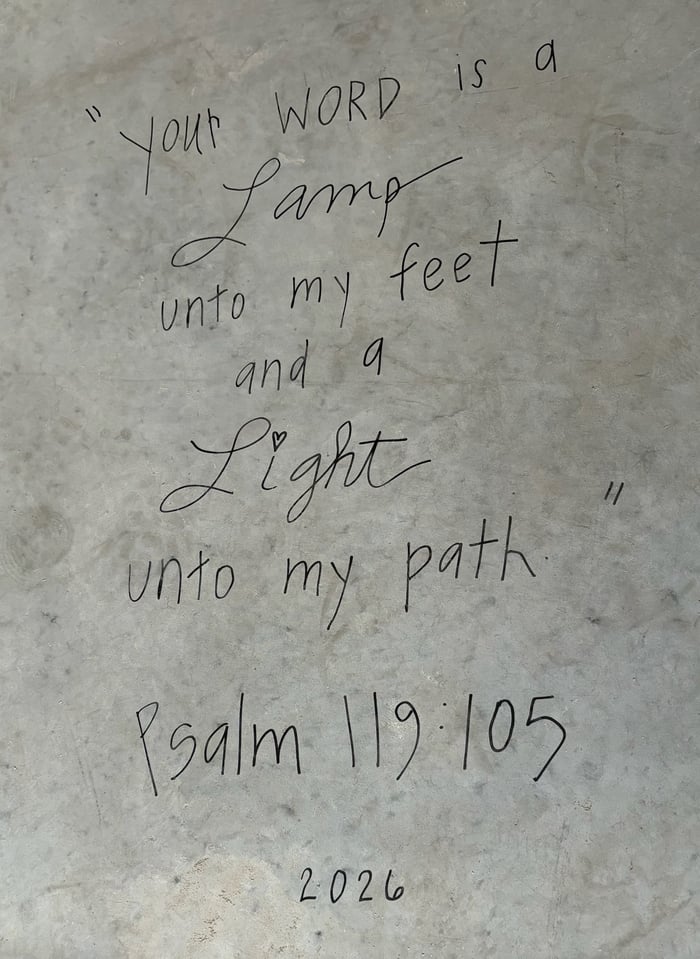 "your WORD is a
Lamp
unto my feet
and a
Light
unto my path."
Psalm 119:105
2026